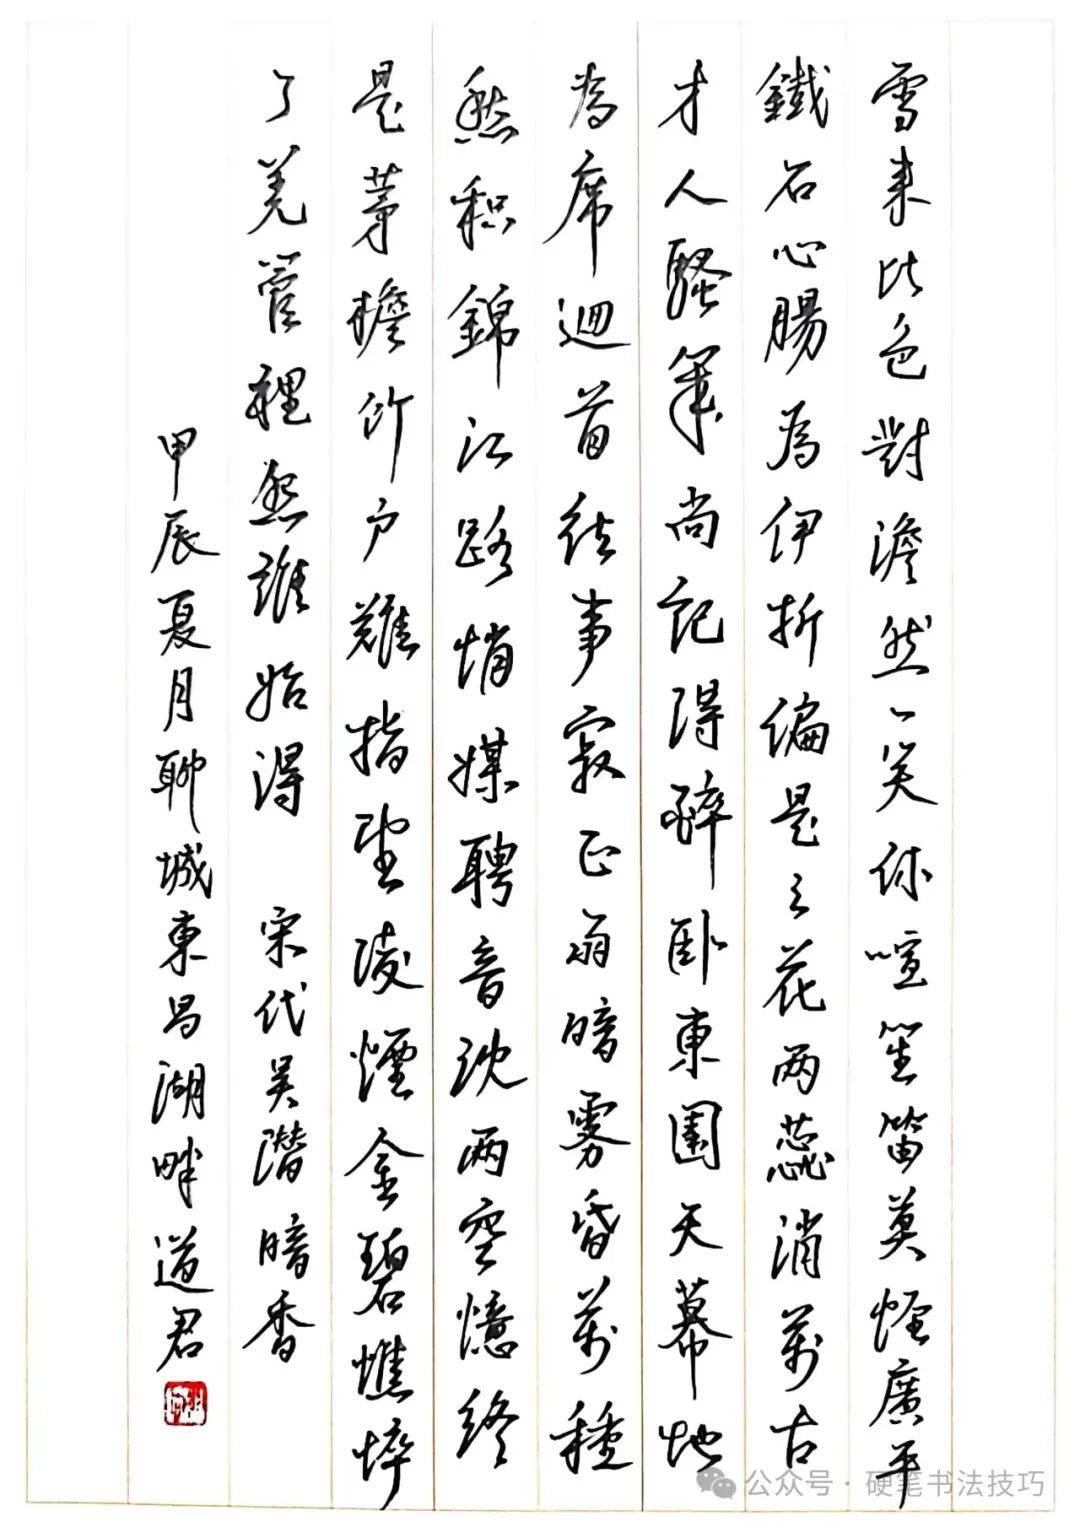 雪来比色對澹然一笑休喧笙笛莫怪廣平
鐵石心腸為伊折偏是三花两蕊消萬古
才人騷筆尚記得醉卧東園天幕地
為席迴首往事寂正雨暗雾昏萬種
愁积錦江路悄媒聘音沈两空憶终
是茅檐竹户難指望凌煙金碧憔悴
了羌管裡怨誰始得 宋代吴潜暗香
甲辰夏月聊城東昌湖畔道君
公众号·硬笔书法技巧